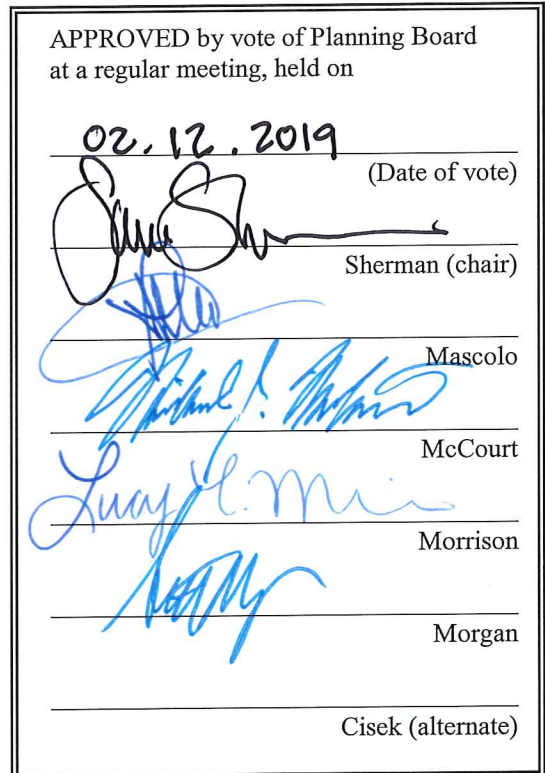 APPROVED by vote of Planning Board
at a regular meeting, held on
02.12.2019
(Date of vote)
Sherman (chair)
Mascolo
McCourt
Lucy
Morrison
Morgan
Cisek (alternate)